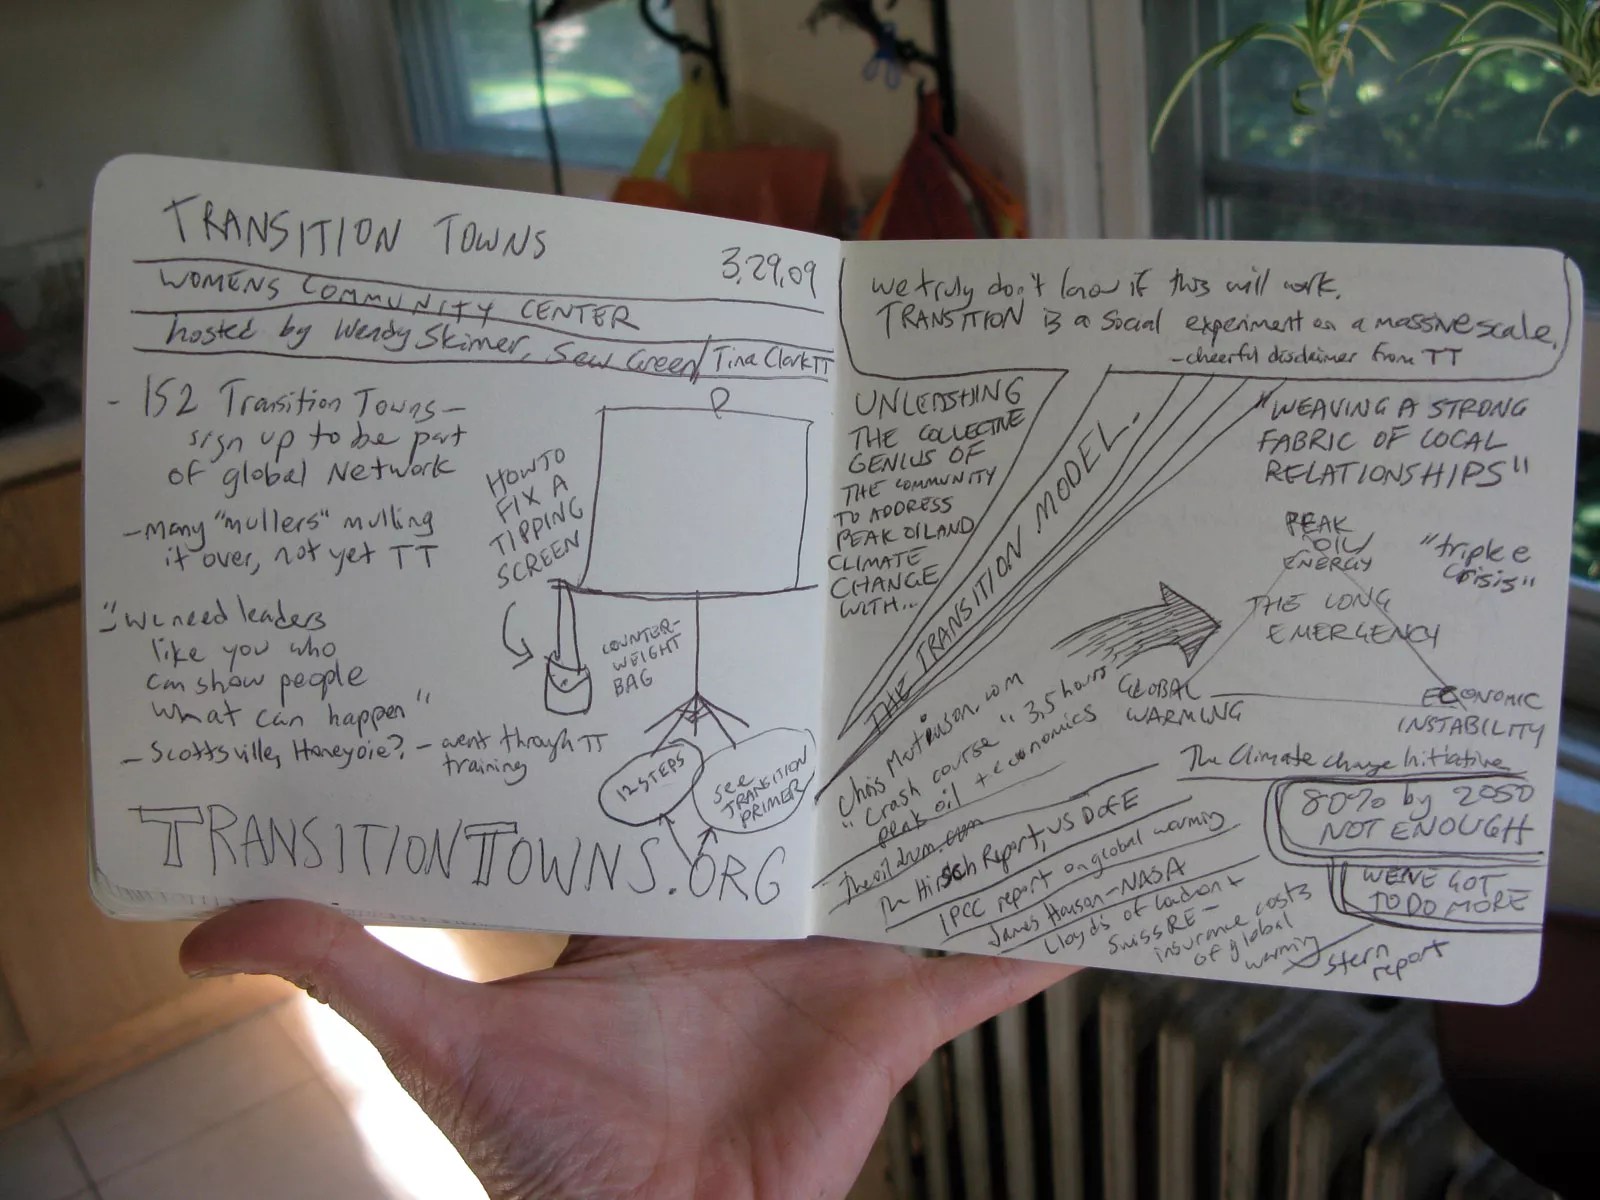 TRANSITION TOWNS
3.29.09
WOMENS COMMUNITY CENTER
hosted by Wendy Skinner, Sew Green/Tina Clark TT
- 152 Transition Towns -
sign up to be part
of global Network
- many "mullers" mulling
it over, not yet TT
"we need leaders
like you who
can show people
what can happen"
- Scottsville, Honeyoie? - went through TT
training
HOW TO
FIX A
TIPPING
SCREEN
COUNTER-
WEIGHT
BAG
12 STEPS
see
TRANSITION
PRIMER
TRANSITIONTOWNS.ORG
we truly don't know if this will work.
TRANSITION is a social experiment on a massive scale.
- cheerful disclaimer from TT
UNLEASHING
THE COLLECTIVE
GENIUS OF
THE COMMUNITY
TO ADDRESS
PEAK OIL AND
CLIMATE
CHANGE
WITH...
THE TRANSITION MODEL.
"WEAVING A STRONG
FABRIC OF LOCAL
RELATIONSHIPS"
PEAK
OIL/
ENERGY
"triple
crisis"
THE LONG
EMERGENCY
GLOBAL
WARMING
ECONOMIC
INSTABILITY
Chris Martinson.com
"Crash course" 3.5 hours
peak oil + economics
Theoildrum.com
The Hirsch Report, US DofE
IPCC report on global warming
James Hanson - NASA
Lloyds of London +
Swiss RE -
insurance costs
of global
warming
stern
report
The Climate change Initiative
80% by 2050
NOT ENOUGH
WE'VE GOT
TO DO MORE